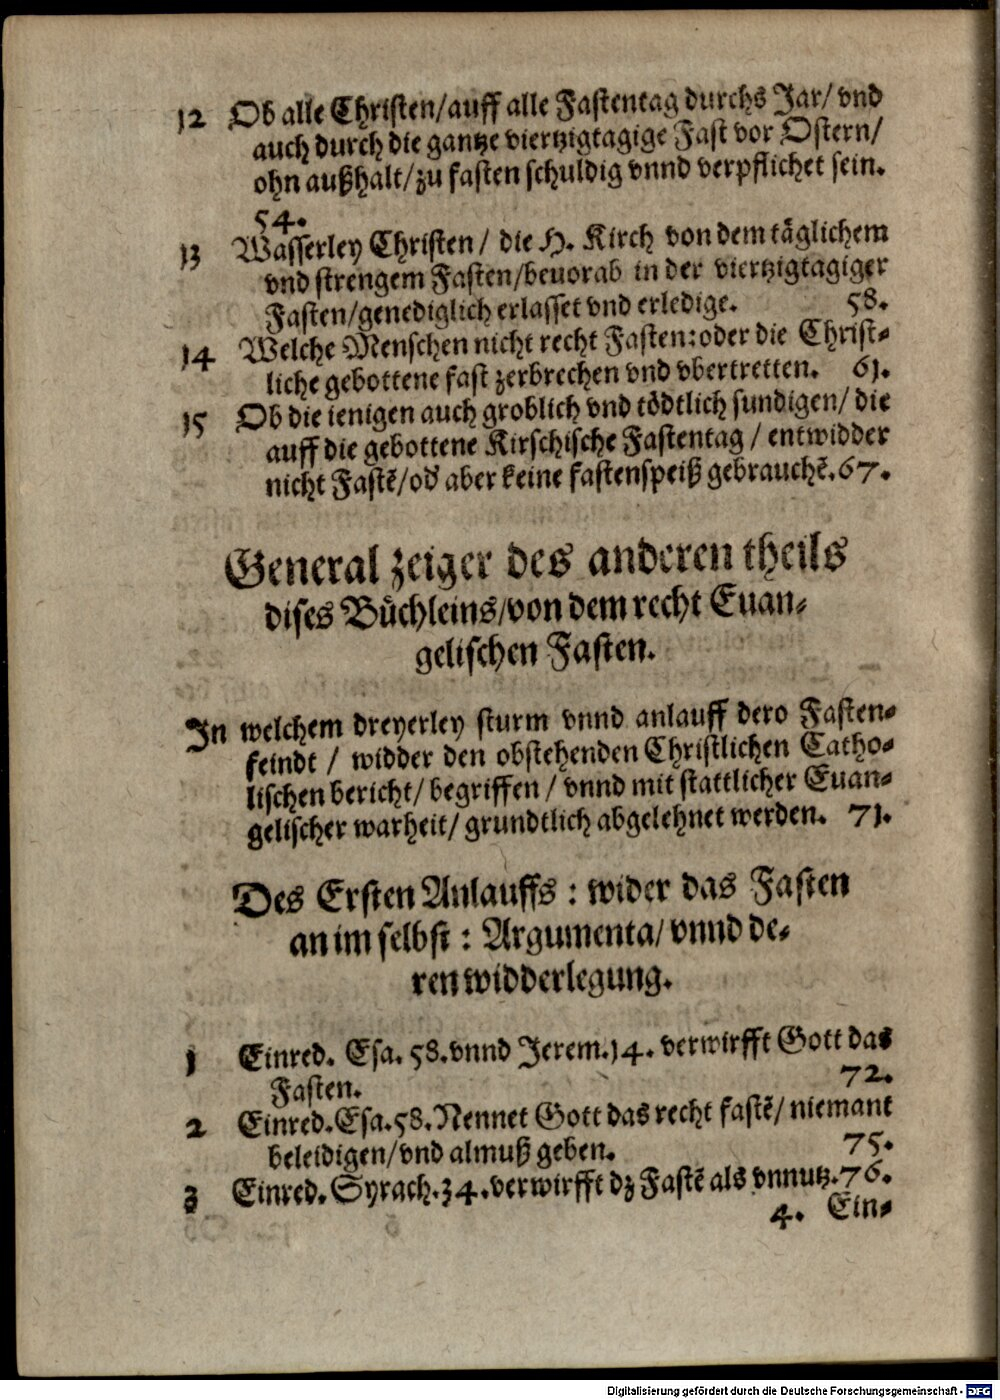 12 Ob alle Christen/auff alle Fastentag durchs Jar/ vnd
auch durch die gantze viertzigtagige Fast vor Ostern/
ohn außhalt/zu fasten schuldig vnnd verpflichet sein.
54.
13 Wasserley Christen / die H. Kirch von dem täglichem
vnd strengem Fasten/beuorab in der viertzigtagiger
Fasten/genediglich erlasset vnd erledige. 58.
14 Welche Menschen nicht recht Fasten:oder die Christ-
liche gebottene fast zerbrechen vnd vbertretten. 61.
15 Ob die ienigen auch groblich vnd tödtlich sundigen/ die
auff die gebottene Kirschische Fastentag / entwidder
nicht Fastē/od̓ aber keine fastenspeiß gebrauchē.67.
General zeiger des anderen theils
dises Büchleins/von dem recht Euan-
gelischen Fasten.
In welchem dreyerley sturm vnnd anlauff dero Fasten-
feindt / widder den obstehenden Christlichen Catho-
lischen bericht/ begriffen / vnnd mit stattlicher Euan-
gelischer warheit/ grundtlich abgelehnet werden. 71.
Des Ersten Anlauffs : wider das Fasten
an im selbst : Argumenta/ vnnd de-
ren widderlegung.
1 Einred. Esa. 58.vnnd Jerem.14. verwirfft Gott das
Fasten. 72.
2 Einred.Esa.58.Nennet Gott das recht fastē/ niemant
beleidigen/vnd almuß geben. 75.
3 Einred.Syrach.34.verwirfft dz Fastē als vnnutz.76.
4. Ein-
Digitalisierung gefördert durch die Deutsche Forschungsgemeinschaft - DFG